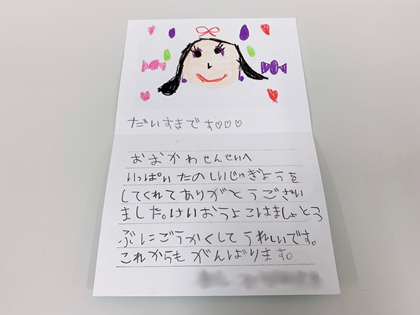 だいすきです♡♡♡
おおかわせんせいへ
いっぱいたのしいじゅぎょうを
してくれてありがとうござい
ました。けいおうよこはましょとう
ぶにごうかくしてうれしいです。
これからもがんばります。